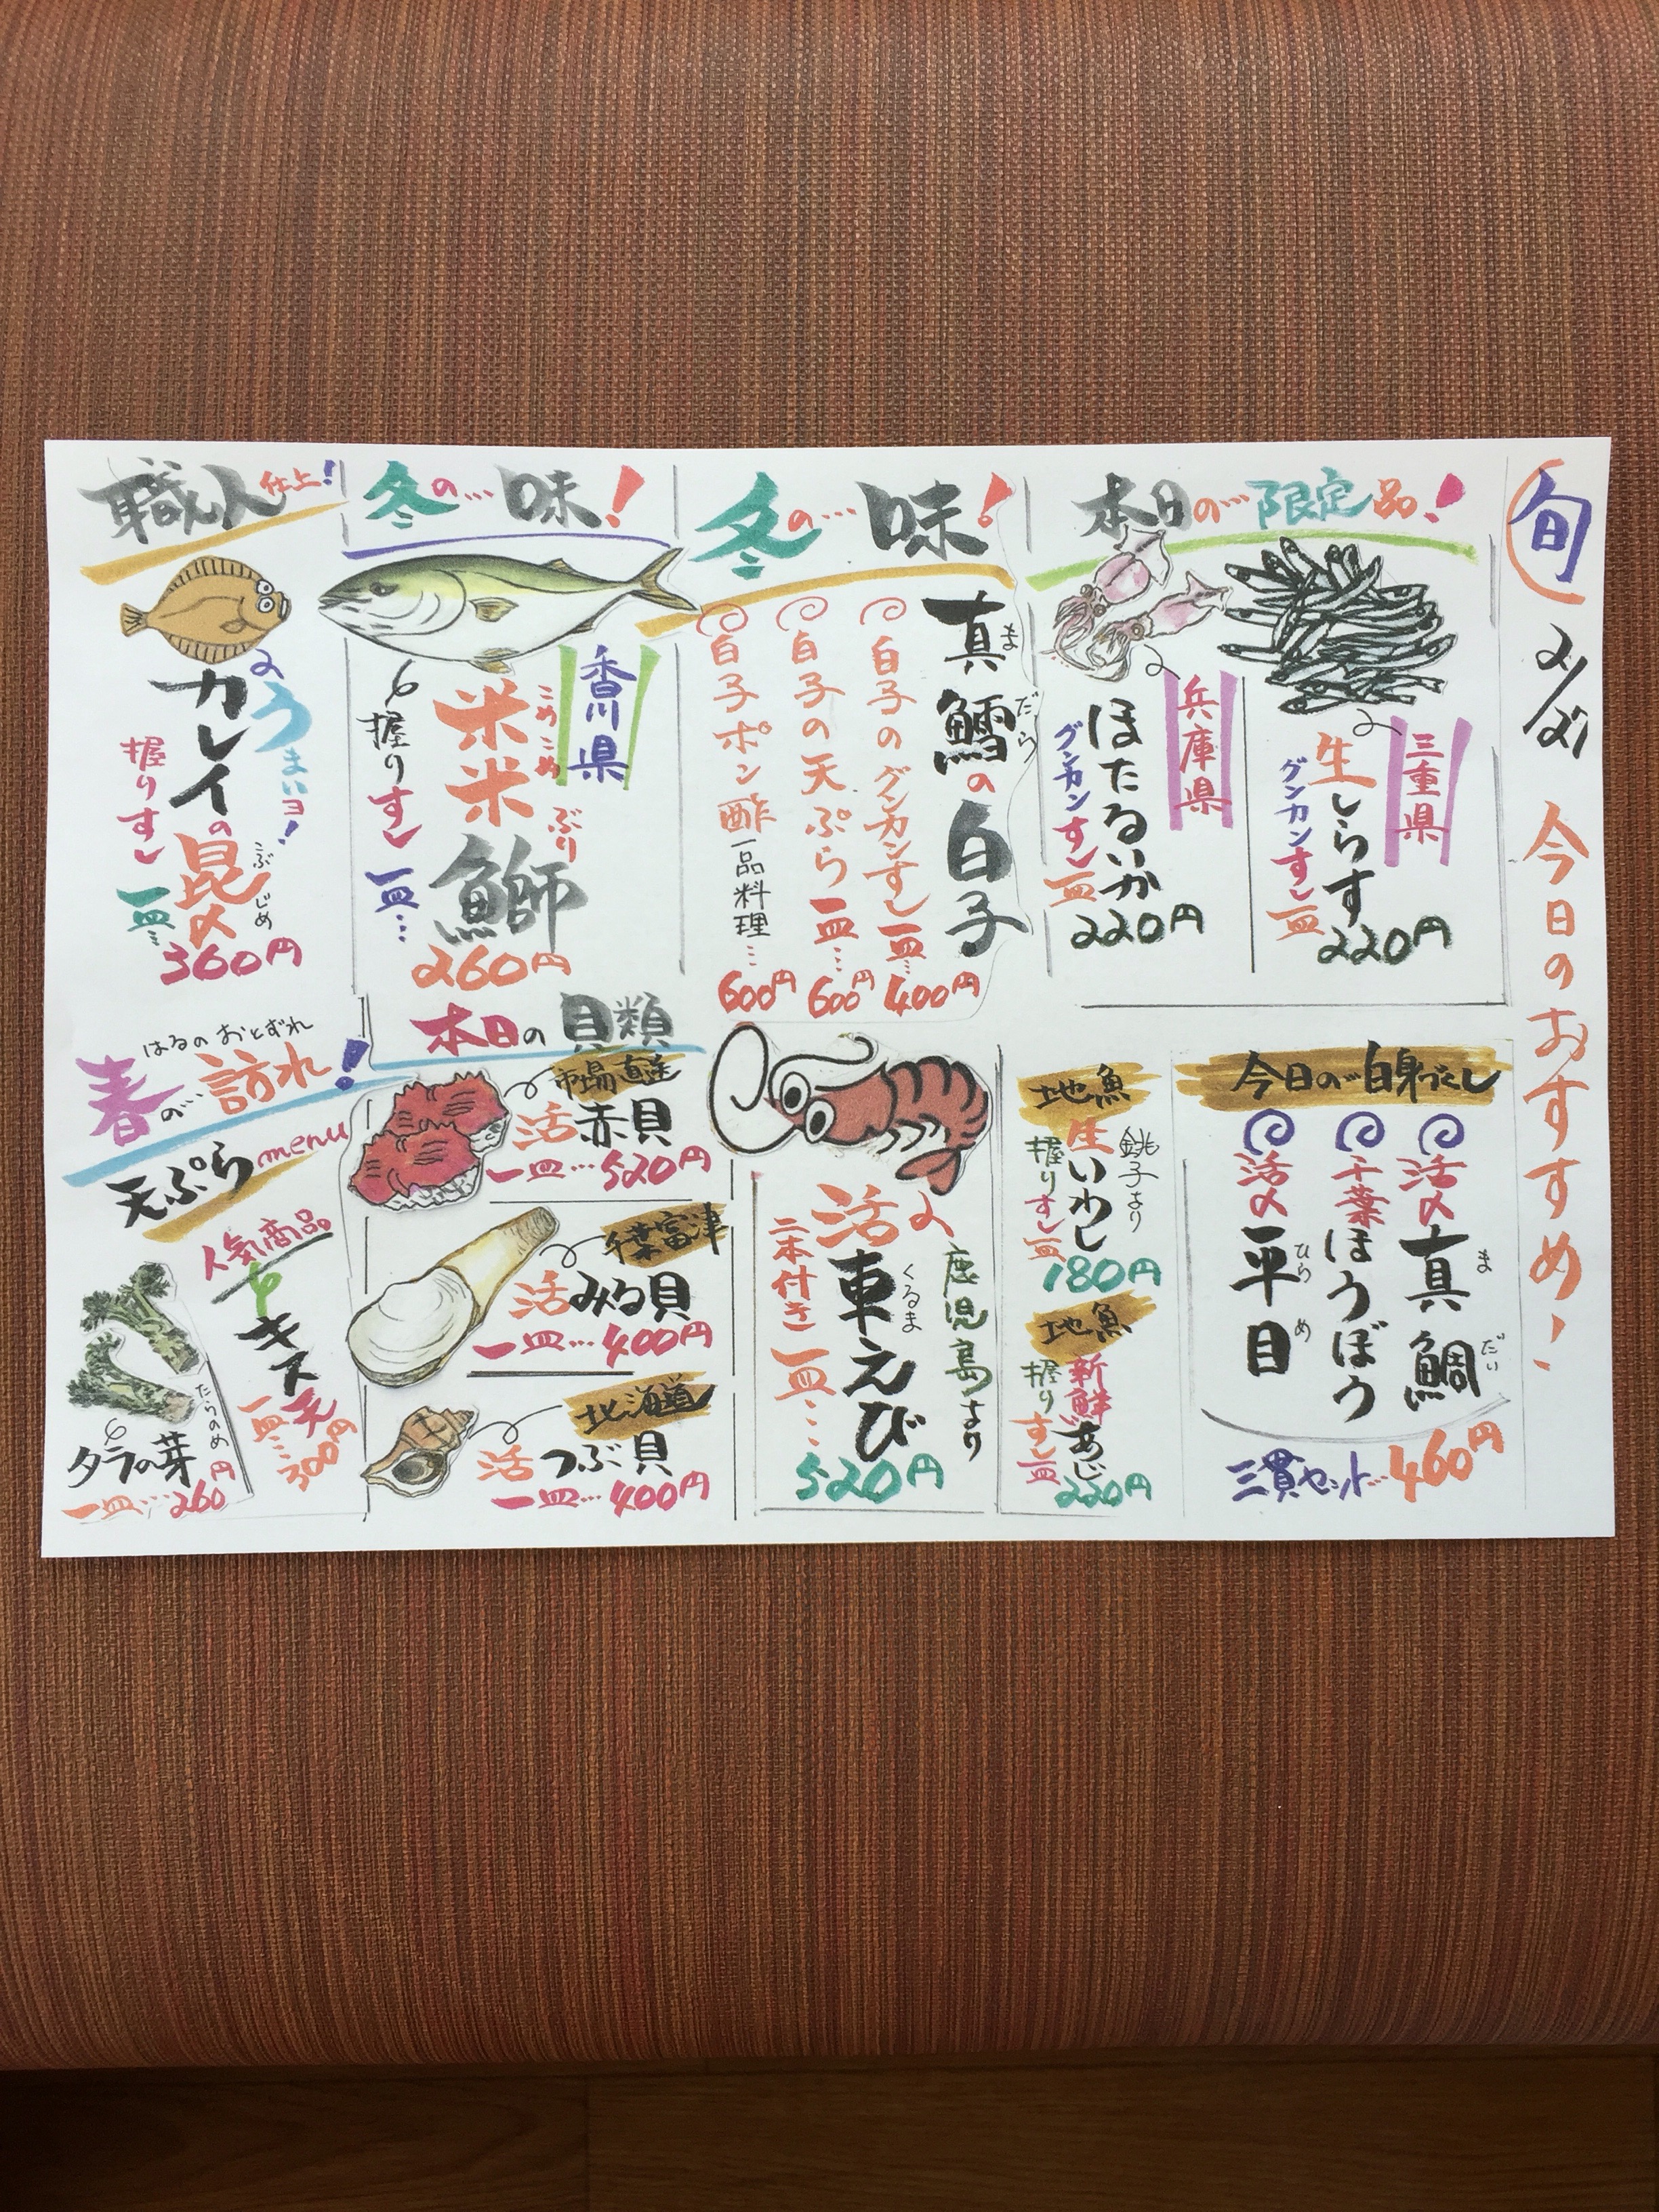 旬
今日のおすすめ!
本日の…限定品!
三重県
生しらす
グンカンすし一皿
220円
兵庫県
ほたるいか
グンカンすし一皿
220円
冬の…味!
真鱈の白子
まだら
白子のグンカンすし一皿…400円
白子の天ぷら一皿…600円
白子ポン酢一品料理…600円
冬の…味!
香川県
こめこめぶり
米米鰤
握りすし一皿…
260円
職人仕上!
うまいヨ!
カレイの昆〆
こぶじめ
握りすし一皿…
360円
今日の白身づくし
活〆真鯛
まだい
千葉ほうぼう
活〆平目
ひらめ
三貫セット…460円
地魚
銚子より
生いわし
握りすし一皿
180円
地魚
新鮮あじ
握りすし一皿
220円
鹿児島より
活〆車えび
くるま
二本付き一皿…
520円
本日の貝類
市場直送
活赤貝
一皿…520円
千葉富津
活みる貝
一皿…400円
北海道
活つぶ貝
一皿…400円
はるのおとずれ
春の…訪れ!
天ぷらmenu
人気商品
キス天
一皿…300円
たらのめ
タラの芽
一皿…260円